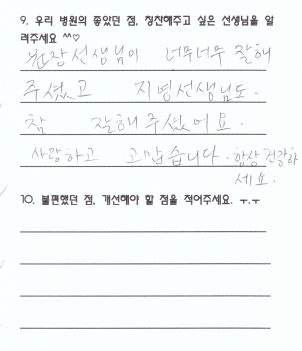 9. 우리 병원의 좋았던 점, 칭찬해주고 싶은 선생님을 알
려주세요 ^^♡
원장선생님이 너무너무 잘해
주셨고 지병선생님도.
참 잘해주셨어요.
사랑하고 고맙습니다. 항상건강하
세요.
10. 불편했던 점, 개선해야 할 점을 적어주세요. ㅜ.ㅜ